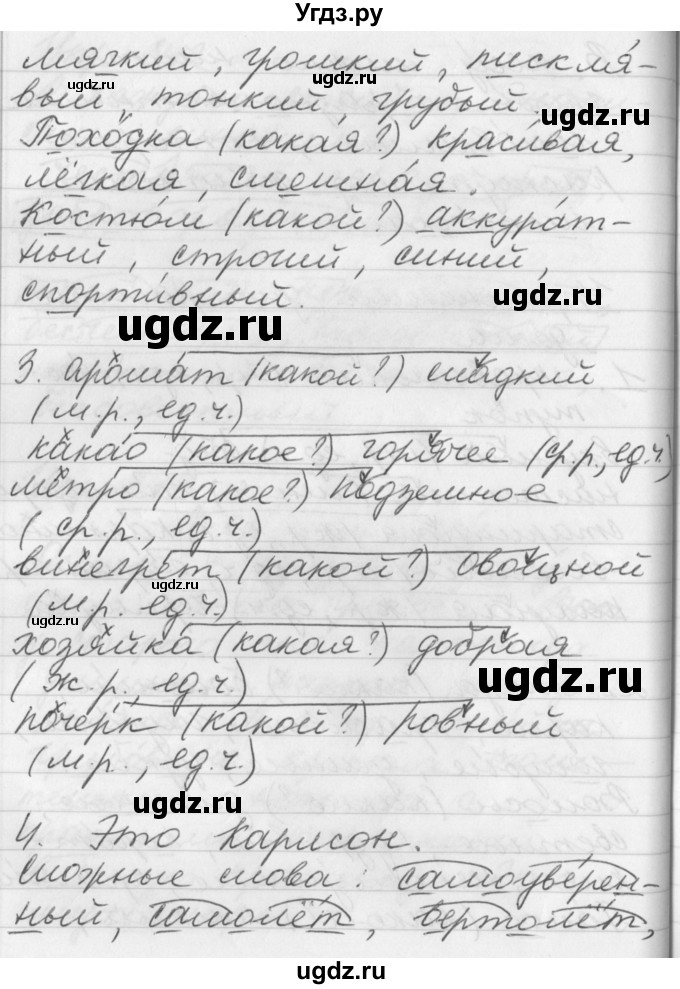 Угдз.ру
мягкий, громкий, пискля-
вый, тонкий, грубый.
Походка (какая?) красивая,
лёгкая, смешная.
Костюм (какой?) аккурат-
ный, строгий, синий,
спортивный.
3. аромат (какой?) сладкий
(м.р., ед.ч.)
какао (какое?) горячее (ср.р., ед.ч.)
метро (какое?) подземное
(ср.р., ед.ч.)
винегрет (какой?) овощной
(м.р. ед.ч.)
хозяйка (какая?) добрая
(ж.р., ед.ч.)
почерк (какой?) ровный
(м.р., ед.ч.)
4. Это Карлсон.
Сложные слова: самоуверен-
ный, самолёт, вертолёт,
ugdz.ru
ugdz.ru
ugdz.ru
ugdz.ru
ugdz.ru
ugdz.ru
ugdz.ru
ugdz.ru
ugdz.ru
ugdz.ru